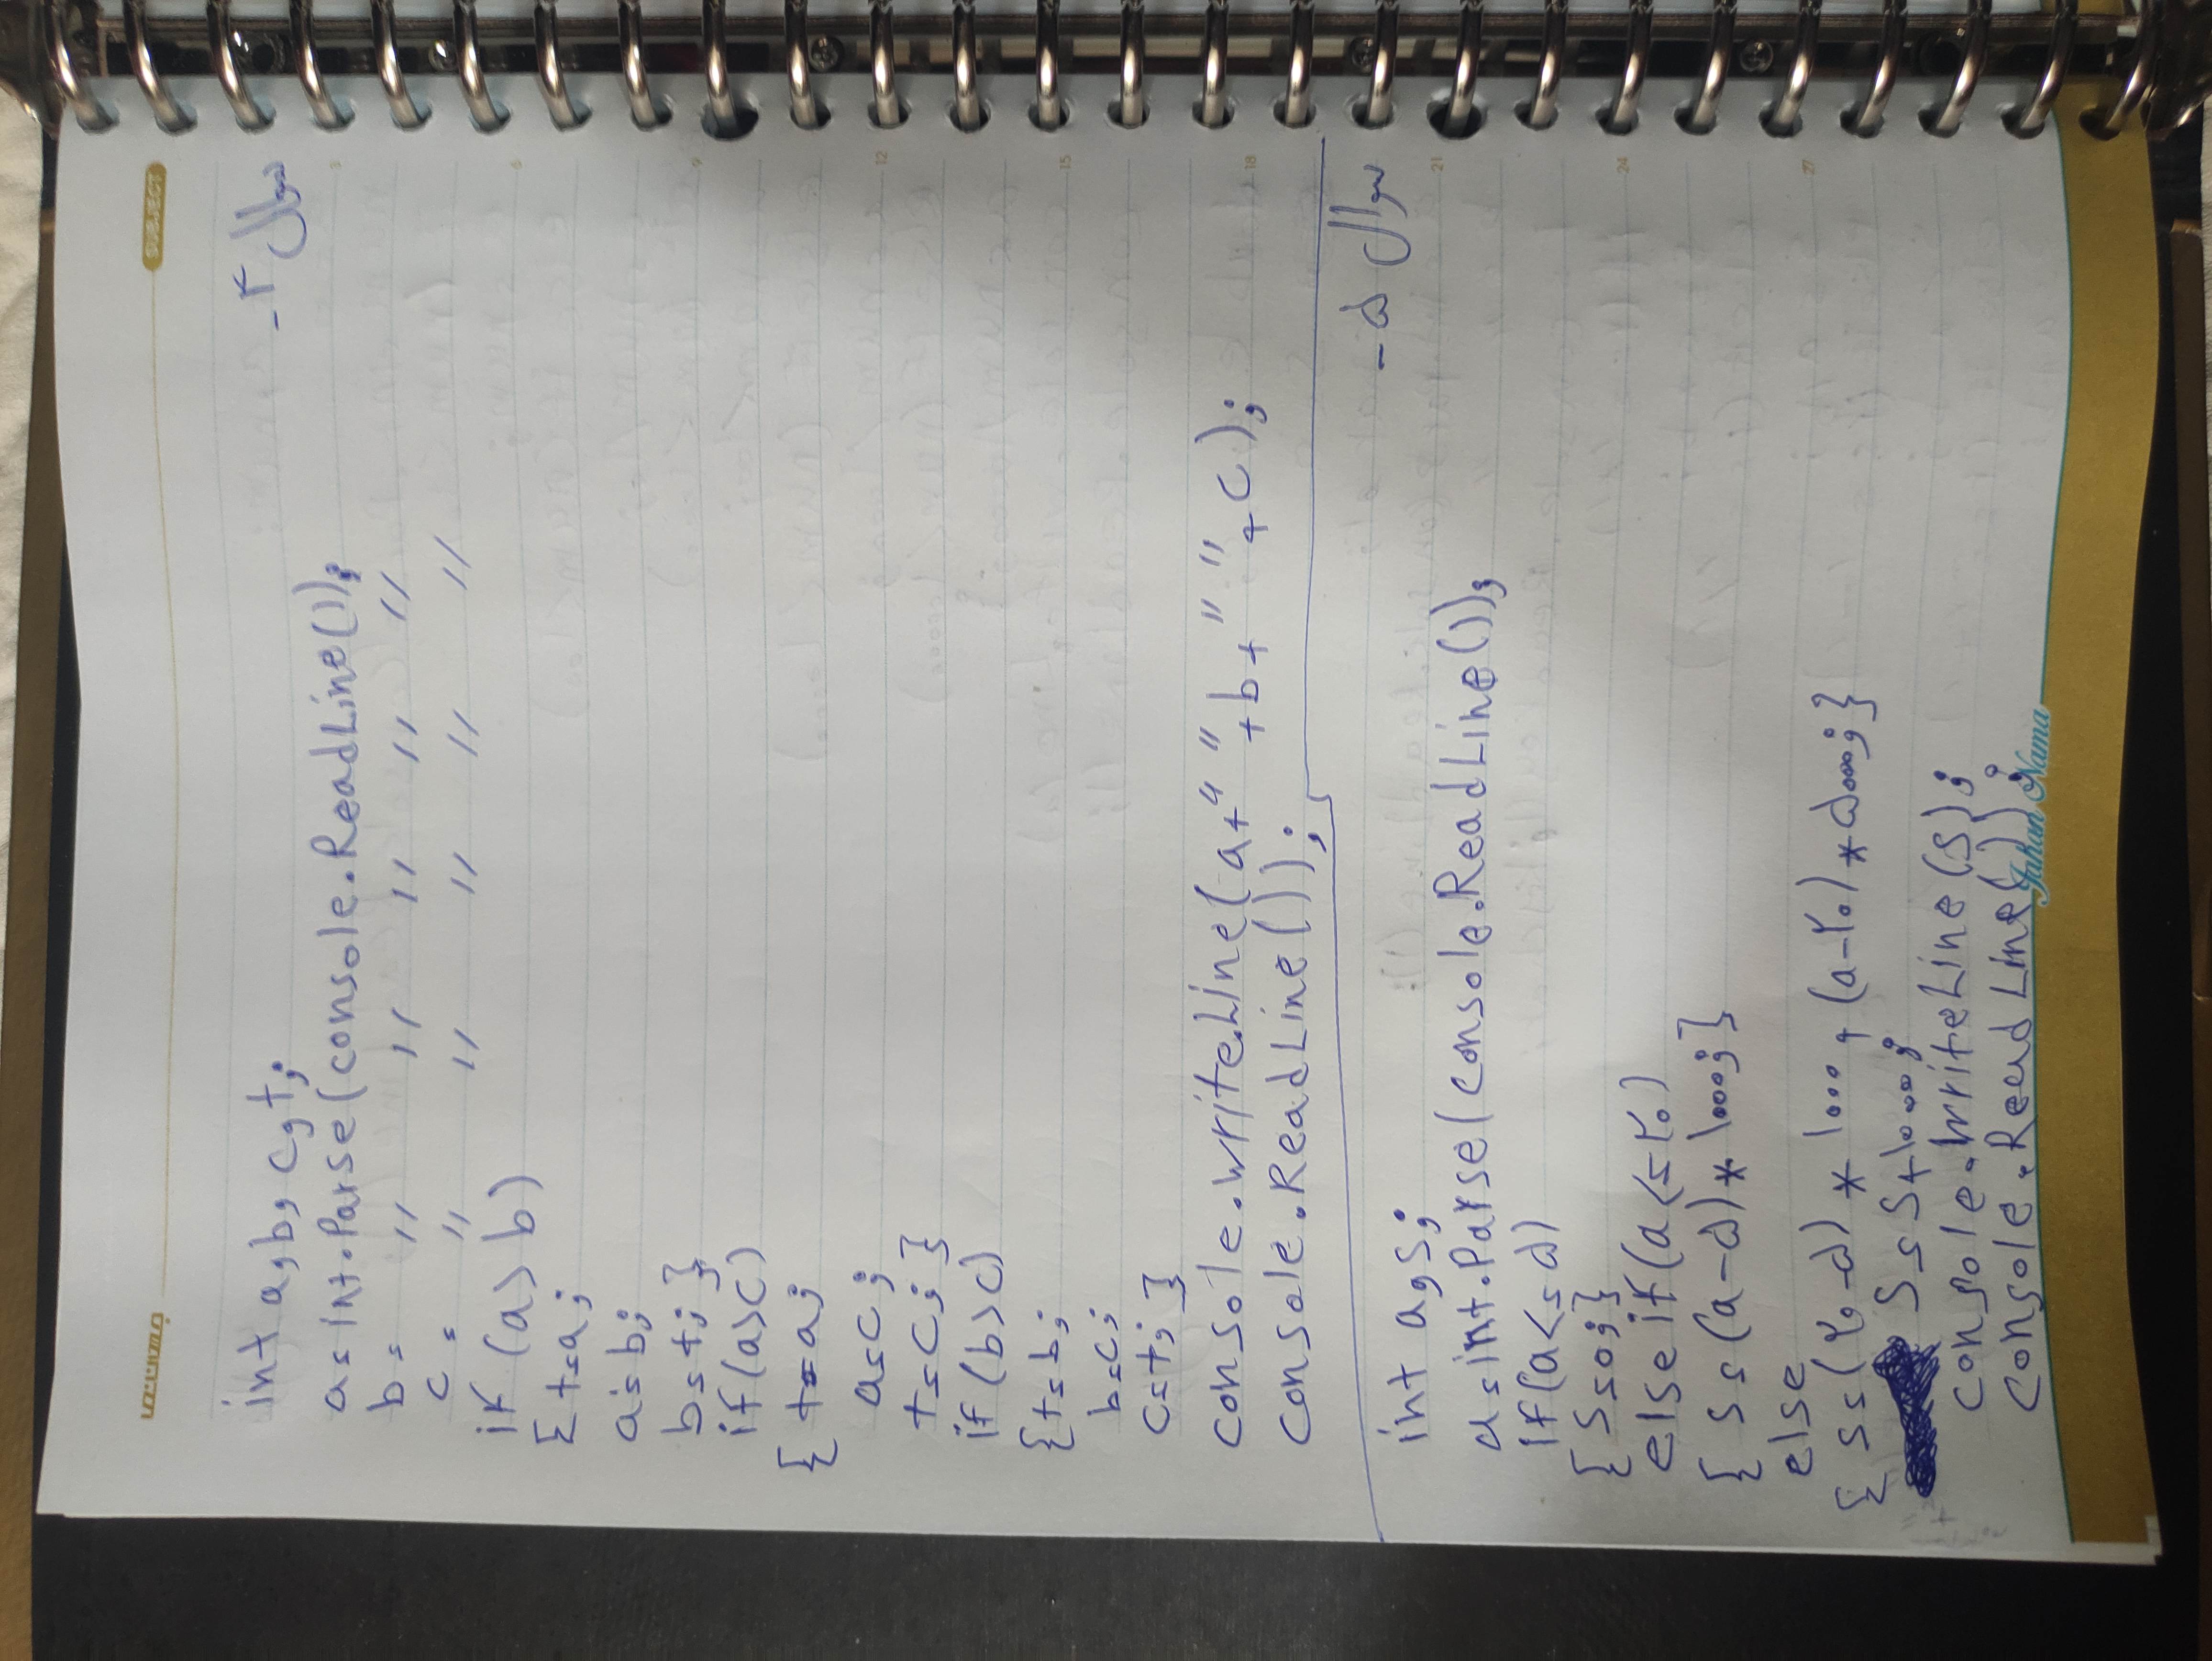 جهان‌نما
SUBJECT
سوال ۴-
int a, b, c, t;
a = int.Parse(console.ReadLine());
b = " " " " "
c = " " " " "
if (a > b)
{ t = a;
a = b;
b = t; }
if (a > c)
{ t = a;
a = c;
t = c; }
if (b > c)
{ t = b;
b = c;
c = t; }
console.writeLine(a + " " + b + " " + c);
console.ReadLine());
سوال ۵-
int a, s;
a = int.Parse(console.ReadLine());
if (a <= ۵)
{ s = 0; }
else if (a <= ۲۰)
{ s = (a - ۵) * ۱۰۰۰; }
else
{ s = (۲۰ - ۵) * ۱۰۰۰ + (a - ۲۰) * ۵۰۰۰; }
s = s + ۱۰۰۰۰;
console.WriteLine(s);
console.ReadLine());
Jahan Nama